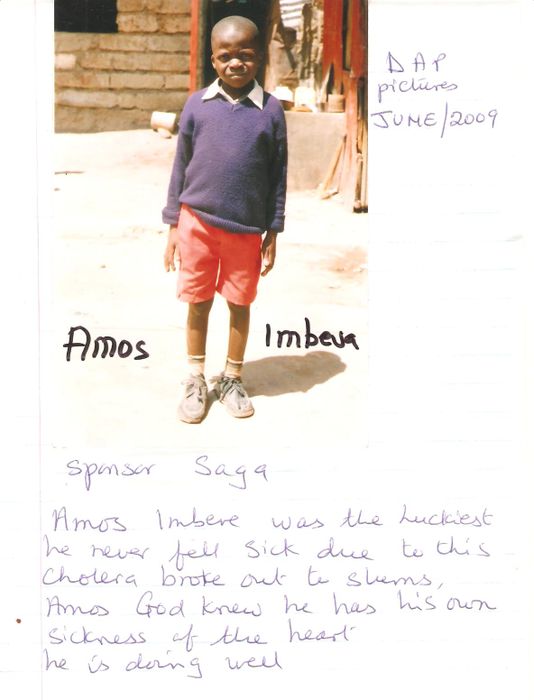 DAP
pictures
JUME/2009
Amos Imbeva
Sponsor Saga
Amos Imbere was the luckiest
he never fell sick due to this
cholera broke out to slums,
Amos God knew he has his own
sickness of the heart
he is doing well